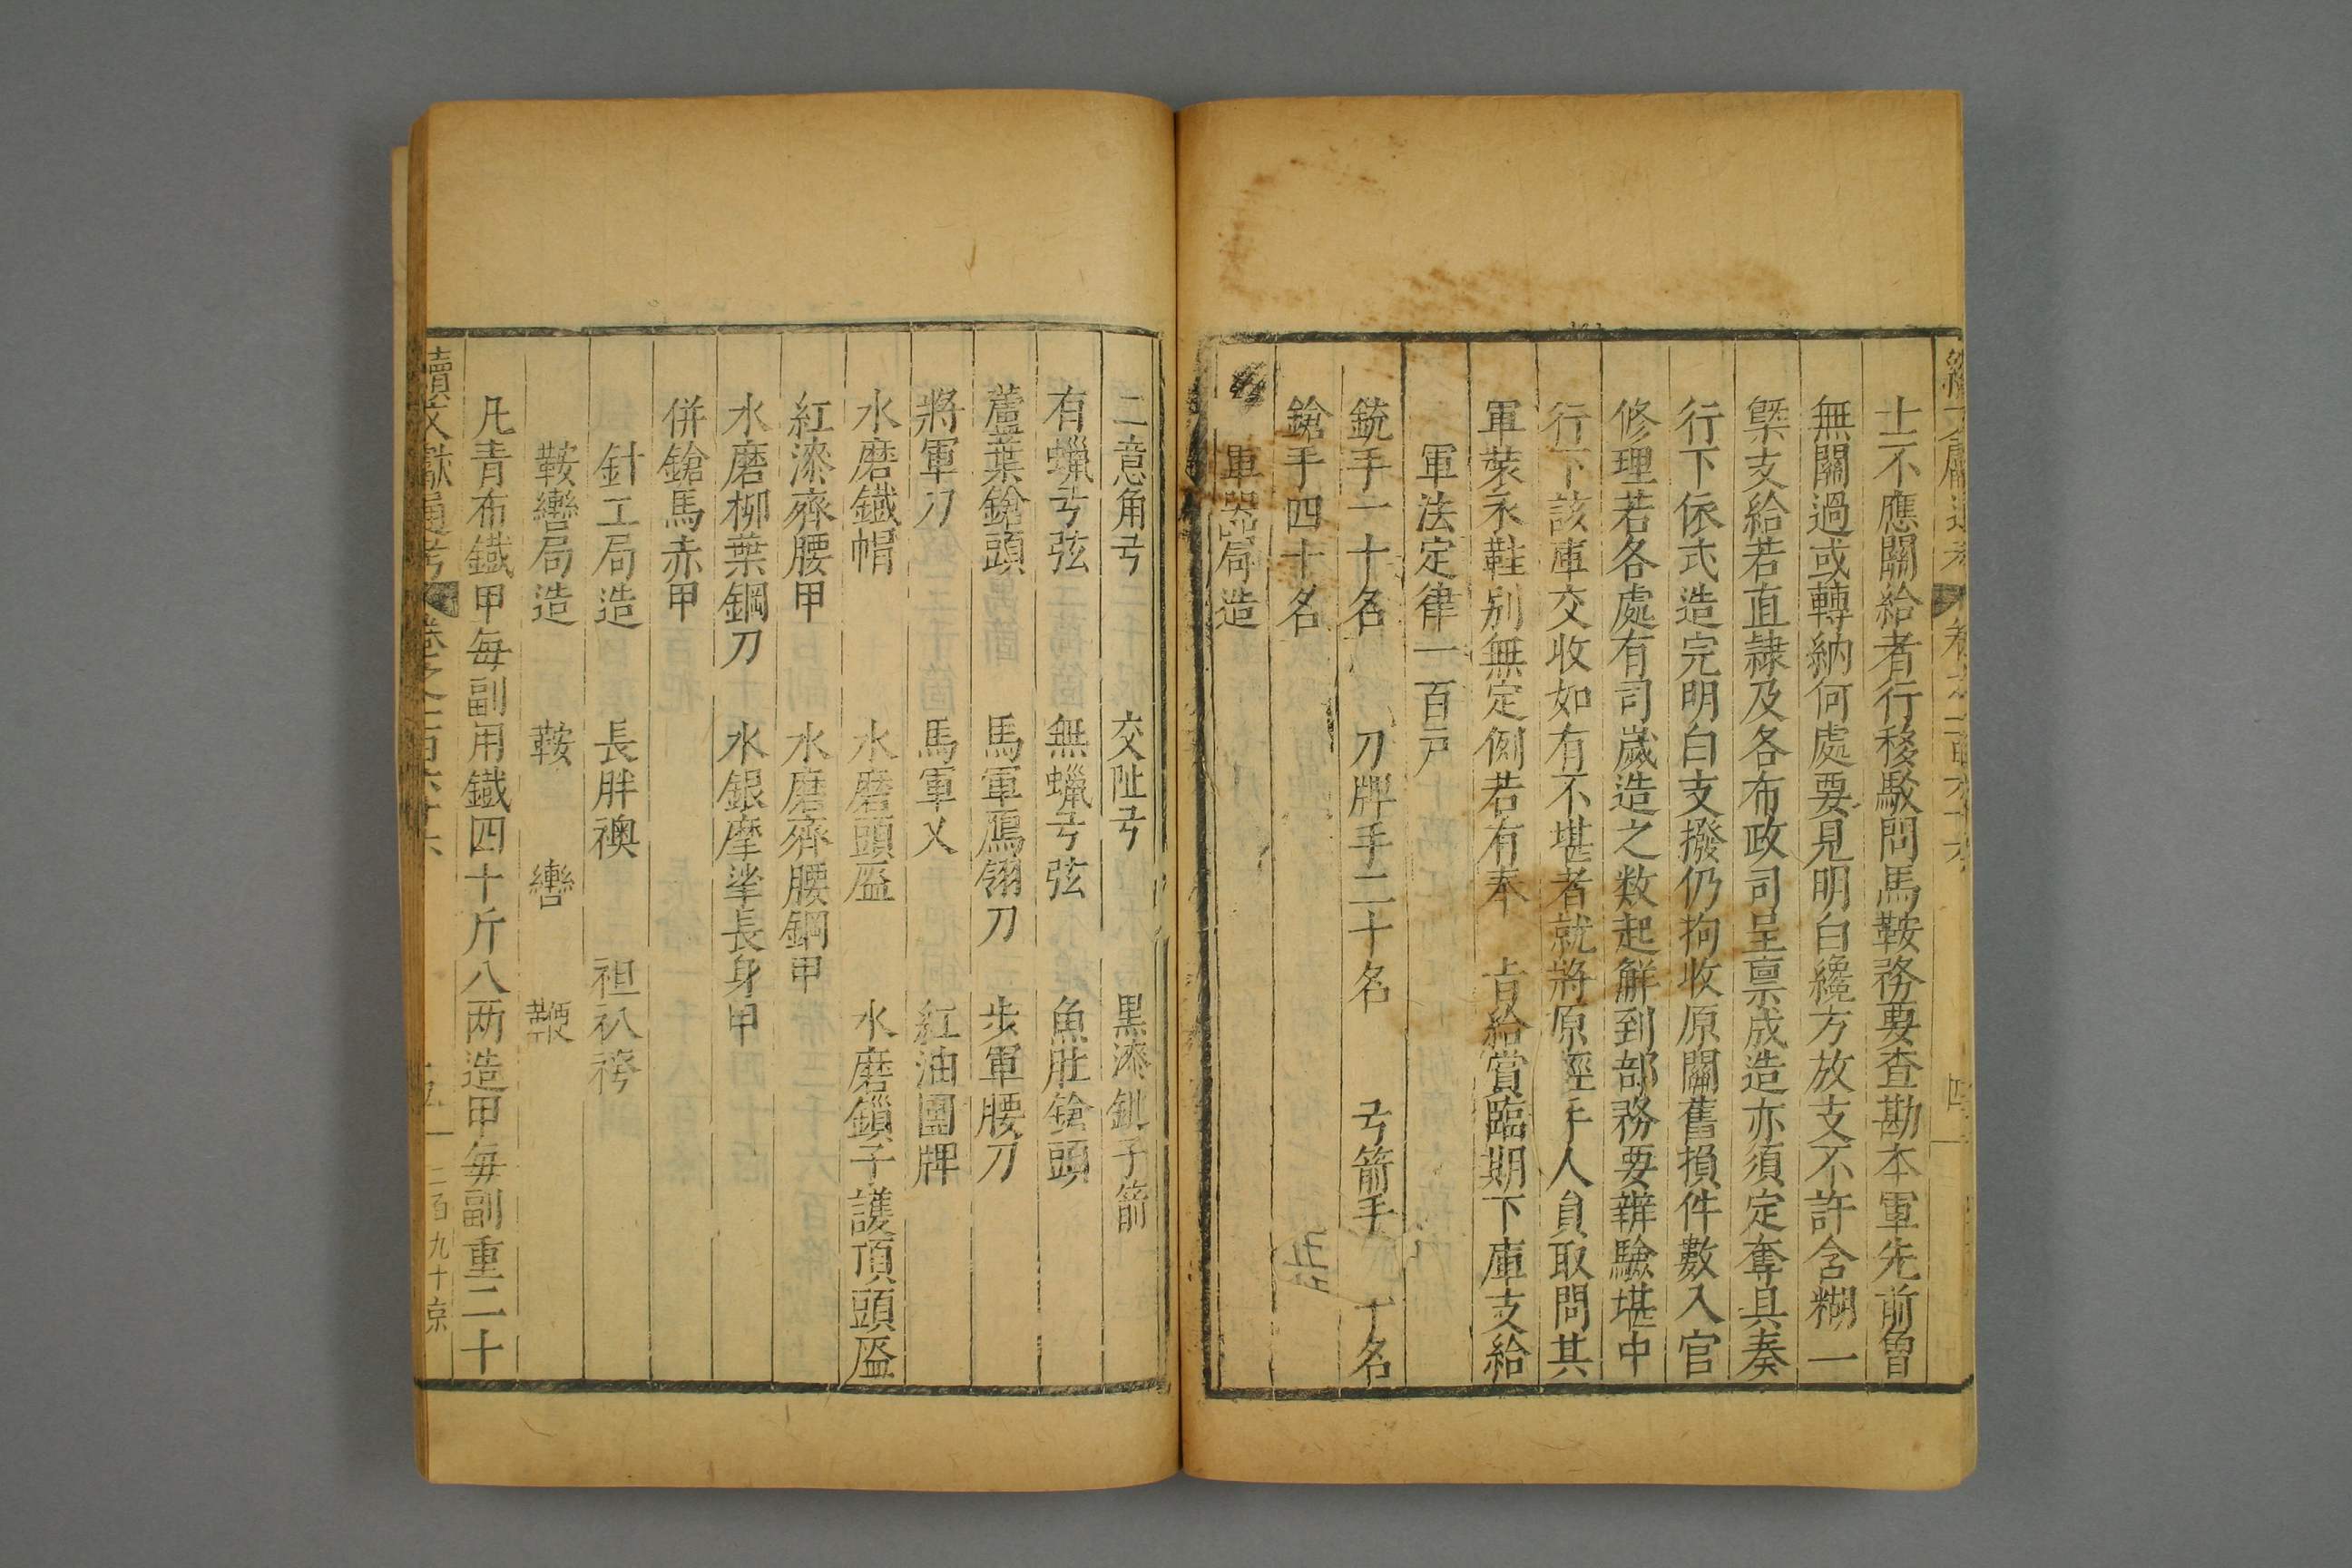 士不應關給者行移駁問馬鞍務要查勘本軍先前曾
無關過或轉納何處要見明白纔方放支不許含糊一
槩支給若直隸及各布政司呈禀成造亦須定奪具奏
行下依式造完明白支撥仍拘收原關舊損件數入官
修理若各處有司歲造之数起解到部務要辨驗堪中
行下該庫交收如有不堪者就將原經手人負取問其
軍裝衣鞋别無定例若有奉　旨給賞臨期下庫支給
軍法定律一百戸
銃手一十名　刀牌手二十名　弓箭手　十名
鎗手四十名
軍器局造
二意角弓　交阯弓　黑漆鈚子箭
有蠟弓弦　無蠟弓弦　魚肚鎗頭
蘆葉鎗頭　馬軍鴈翎刀　步軍腰刀
將軍刀　馬軍乂　紅油團牌
水磨鐵帽　水磨頭盔　水磨鎖子護項頭盔
紅漆齊腰甲　水磨齊腰鋼甲
水磨柳葉鋼刀　水銀摩挲長身甲
併鎗馬赤甲
針工局造　長胖襖　袒衤八袴
鞍轡局造　鞍　轡　鞭
凡青布鐵甲每副用鐵四十斤八两造甲每副重二十
續文獻通考　卷之一百六十六　五　二百九十京